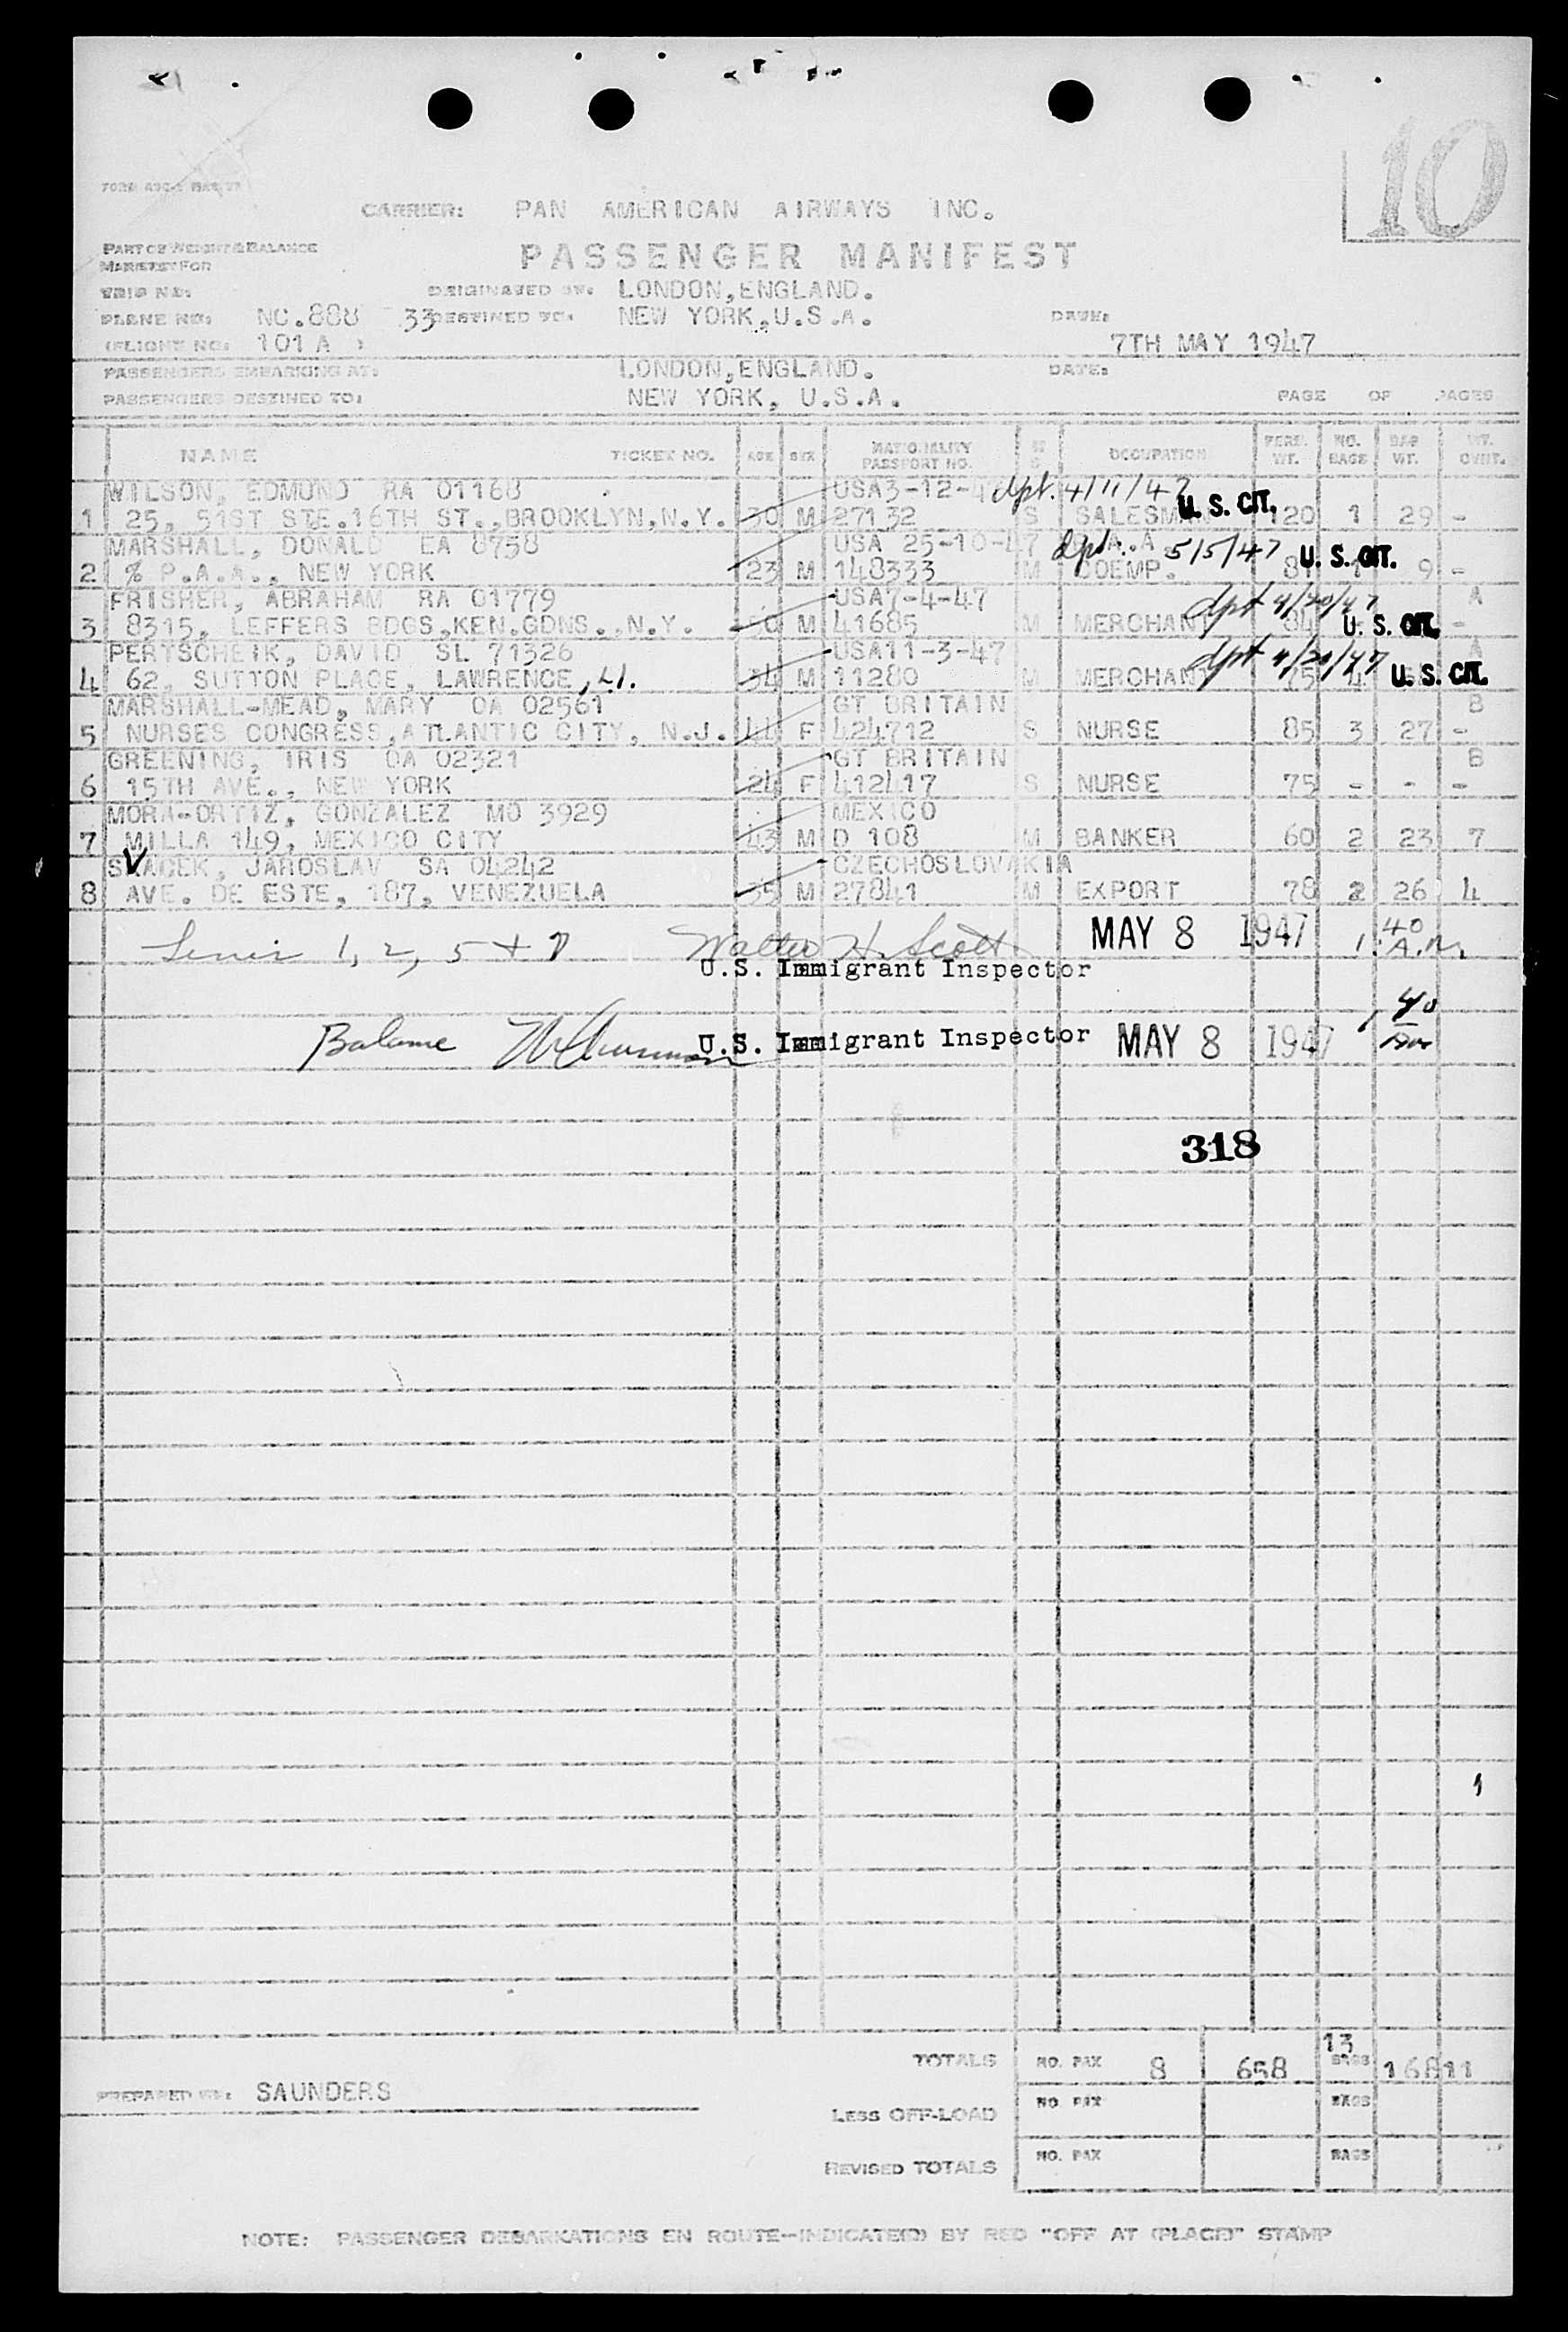 10
CARRIER: PAN AMERICAN AIRWAYS INC.
PART OF WEIGHT & BALANCE
MANIFEST FOR
PASSENGER MANIFEST
TRIP NO: ORIGINATED IN: LONDON, ENGLAND.
PLANE NO: NC.888 33 DESTINED TO: NEW YORK, U.S.A. DATE:
(FLIGHT NO: 101 A ) 7TH MAY 1947
PASSENGERS EMBARKING AT: LONDON, ENGLAND. DATE:
PASSENGERS DESTINED TO: NEW YORK, U.S.A. PAGE OF PAGES
NAME TICKET NO. AGE SEX NATIONALITY PASSPORT NO. OCCUPATION PERS. WT. NO. BAGS BAG WT. WT. OVHT.
WILSON, EDMUND RA 01168 USA3-12- dpt. 4/11/47
1 25, 51ST STE.16TH ST.,BROOKLYN,N.Y. 30 M 27132 S SALESMAN U. S. CIT. 120 1 29 -
MARSHALL, DONALD EA 8758 USA 25-10-47 dpt. 5/5/47
2 % P.A.A., NEW YORK 23 M 148333 M COEMP. 81 U. S. CIT. 9 -
FRISHER, ABRAHAM RA 01779 USA7-4-47 dpt 4/20/47 A
3 8315, LEFFERS BDGS,KEN.GDNS.,N.Y. M 41685 M MERCHANT 84 U. S. CIT. -
PERTSCHEIK, DAVID SL 71326 USA11-3-47 dpt 4/20/47 A
4 62, SUTTON PLACE, LAWRENCE, L.I. 34 M 11280 M MERCHANT 75 4 U. S. CIT.
MARSHALL-MEAD, MARY OA 02561 GT BRITAIN B
5 NURSES CONGRESS,ATLANTIC CITY, N.J. 44 F 424712 S NURSE 85 3 27 -
GREENING, IRIS OA 02321 GT BRITAIN B
6 15TH AVE., NEW YORK 24 F 412417 S NURSE 75 - - -
MORA-ORTIZ, GONZALEZ MO 3929 MEXICO
7 MILLA 149, MEXICO CITY 43 M D 108 M BANKER 60 2 23 7
JAROSLAV SA 04242 CZECHOSLOVAKIA
8 AVE. DE ESTE, 187, VENEZUELA 35 M 27841 M EXPORT 78 2 26 4
1, 2, 5 + Walter H. Scott MAY 8 1947 1:40 A.M.
U.S. Immigrant Inspector
Balance U.S. Immigrant Inspector MAY 8 1947 1:40
318
TOTALS NO. PAX 8 658 13 BAGS 168 11
PREPARED BY: SAUNDERS
LESS OFF-LOAD NO. PAX BAGS
REVISED TOTALS NO. PAX BAGS
NOTE: PASSENGER DEBARKATIONS EN ROUTE—INDICATE(D) BY RED "OFF AT (PLACE)" STAMP